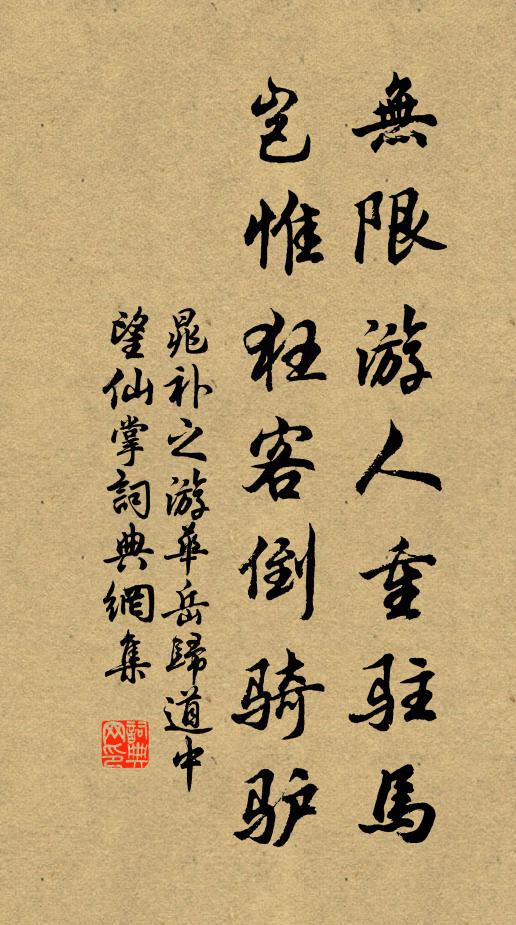 無限游人重駐馬
岂惟狂客倒騎驴
晁补之游華岳歸道中
望仙掌詞典網集
詞典網印